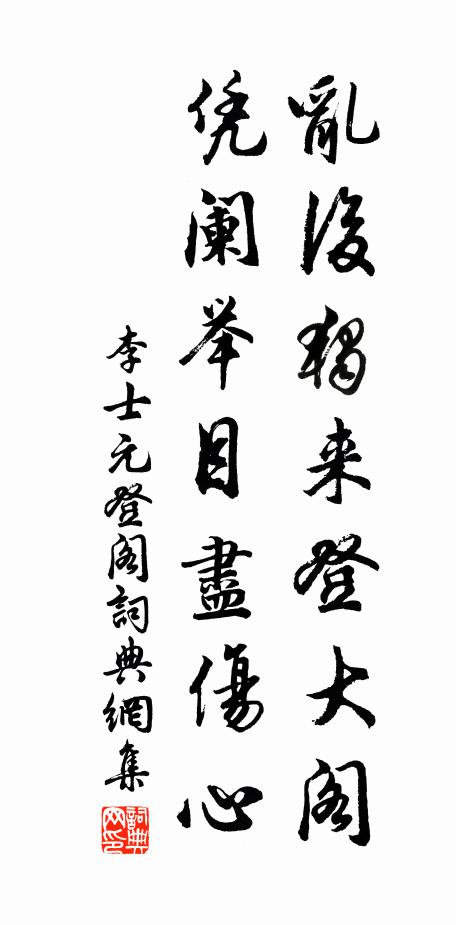 亂後獨来登大阁
凭阑举目盡傷心
李士元登阁詞典網集
詞典網印